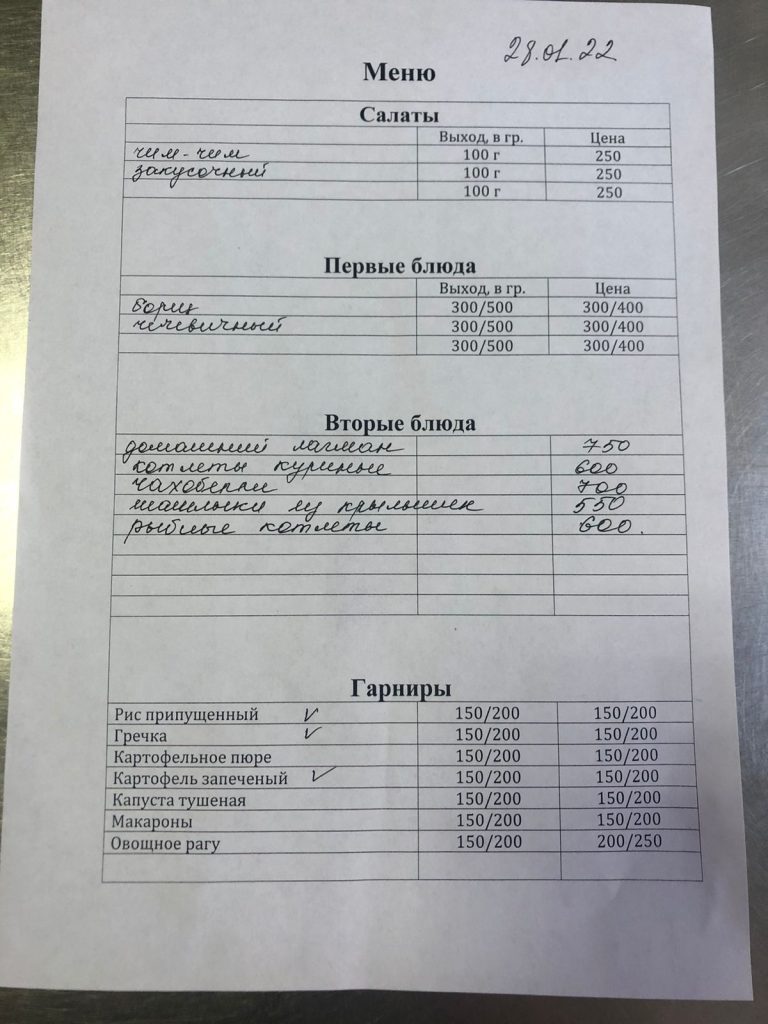 28.01.22
Меню
Салаты
Выход, в гр. Цена
чим-чим 100 г 250
закусочный 100 г 250
100 г 250
Первые блюда
Выход, в гр. Цена
борщ 300/500 300/400
чечевичный 300/500 300/400
300/500 300/400
Вторые блюда
домашний лагман 750
котлеты куриные 600
чахобелли 700
шашлыки из крылышек 550
рыбные котлеты 600.
Гарниры
Рис припущенный ✓ 150/200 150/200
Гречка ✓ 150/200 150/200
Картофельное пюре 150/200 150/200
Картофель запеченый ✓ 150/200 150/200
Капуста тушеная 150/200 150/200
Макароны 150/200 150/200
Овощное рагу 150/200 200/250